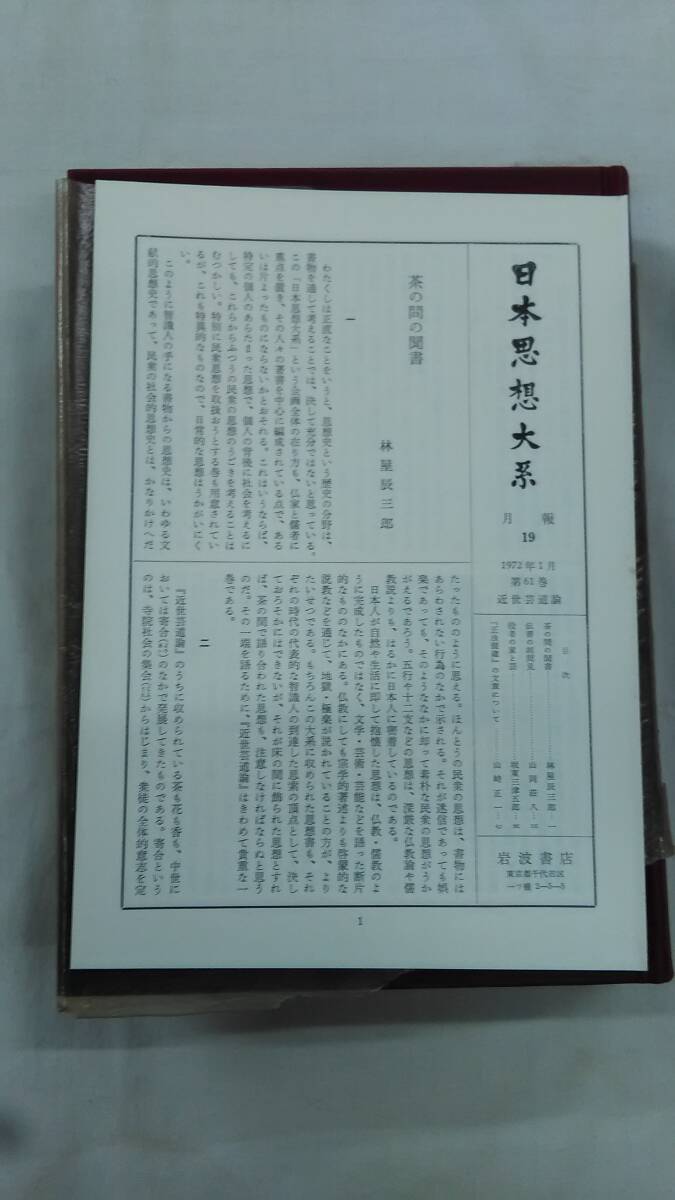 日本思想大系
月報
19
1972年1月
第61巻
近世芸道論
目次
茶の間の聞書…………林屋辰三郎…一
伝書の垣間見…………山岡荘八…三
役者の家と芸…………坂東三津五郎…五
『正法眼蔵』の文章について…………山崎正一…七
岩波書店
東京都千代田区
一ツ橋2-5-5
茶の間の聞書
林屋辰三郎
一
わたくしは正直なことをいうと、思想史という歴史の分野は、
書物を通して考えることでは、決して充分ではないと思っている。
この「日本思想大系」という企画全体の在り方も、仏家と儒者に
重点を置き、その人々の著書を中心に編成されている点で、ある
いは片よったものにならないかとおそれる。これはいうならば、
特定の個人のあらたまった思想で、個人の背後に社会を考えるに
しても、これらからふつうの民衆の思想のうごきを考えることは
むつかしい。特別に民衆思想を取扱おうとする巻も用意されてい
るが、これも特異的なものなので、日常的な思想はうかがいにく
い。
このように智識人の手になる書物からの思想史は、いわゆる文
献的思想史であって、民衆の社会的思想史とは、かなりかけへだ
たったもののように思える。ほんとうの民衆の思想は、書物には
あらわされない行為のなかで示される。それが迷信であっても娯
楽であっても、そのようななかに却って素朴な民衆の思想がうか
がえるであろう。五行や十二支などの思想は、深厳な仏教論や儒
教説よりも、はるかに日本人に密着しているのである。
日本人が自然や生活に即して抱懐した思想は、仏教・儒教のよ
うに完成したものではなく、文学・芸術・芸能などを語った断片
的なもののなかにある。仏教にしても宗学的著述よりも啓蒙的な
説教などを通じて、地獄・極楽が説かれていることの方が、より
たいせつである。もちろんこの大系に収められた思想書も、それ
ぞれの時代の代表的な智識人の到達した思索の頂点として、決し
ておろそかにはできないが、それが床の間に飾られた思想とすれ
ば、茶の間で語り合われた思想も、注意しなければならぬと思う
のだ。その一端を語るために、『近世芸道論』はきわめて貴重な一
巻である。
二
『近世芸道論』のうちに収められている茶も花も香も、中世に
おいては寄合のなかで発展してきたものである。寄合という
のは、寺院社会の集会からはじまり、衆徒の全体的意志を定
1